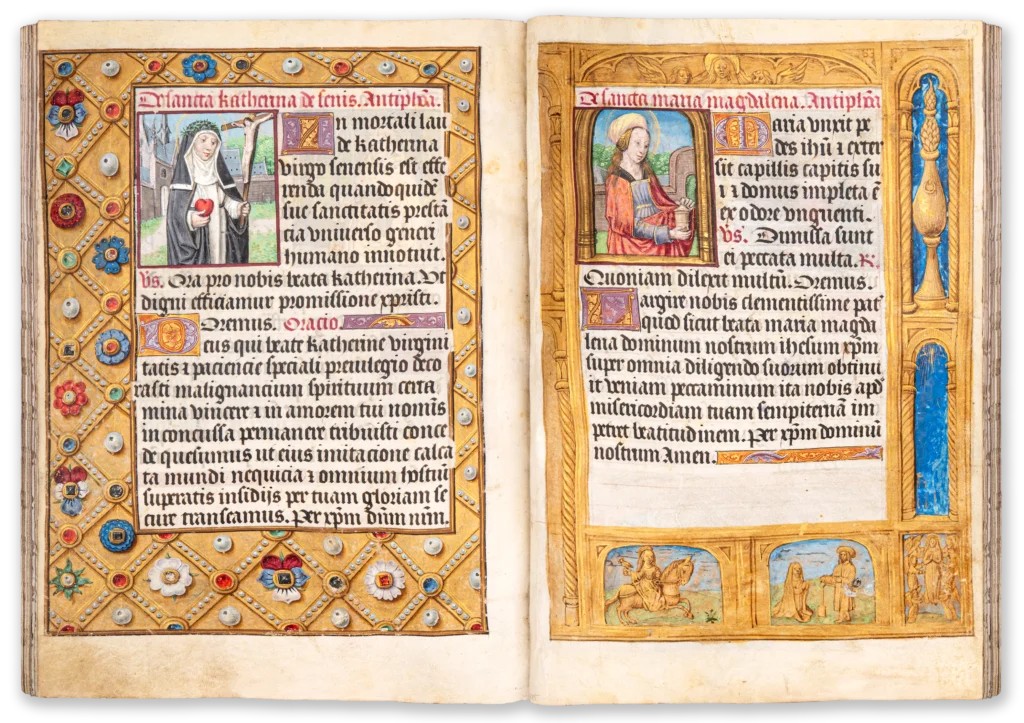 De sancta katherina de senis. Antiphõa.
In mortali lau
de katherina
virgo senensis est effe
renda quandoquidẽ
sue sanctitatis prestã
cia vniuerso generi
humano innotuit.
V̓s. Ora pro nobis beata katherina. Vt
digni efficiamur promissione xpristi.
Oremus. Oracio.
Deus qui beate katherine virgini
tatis ⁊ paciencie speciali preuilegio deco
rasti malignancium spirituum certa
mina vincere ⁊ in amorem tui nominis
inconcussa permanere tribuisti conce
de quesumus ut eius imitacione calca
ta mundi nequicia ⁊ omnium hostiũ
superatis insidijs per tuam gloriam se
cure transeamus. Per xp̃m dñm nr̃m.
De sancta maria magdalena. Antiphõa
Maria vnxit pe
des ihũ ⁊ exter
sit capillis capitis su
i ⁊ domus impleta ẽ
ex odore vnguenti.
V̓s. Dimissa sunt
ei peccata multa. R.
Quoniam dilexit multũ. Oremus.
Largire nobis clementissime pat̾
quod sicut beata maria magda
lena dominum nostrum ihesum xp̃m
super omnia diligendo suorum obtinu
it veniam peccaminum ita nobis apd̾
misericordiam tuam sempiternã im
petret beatitudinem. Per xp̃m dominũ
nostrum Amen.